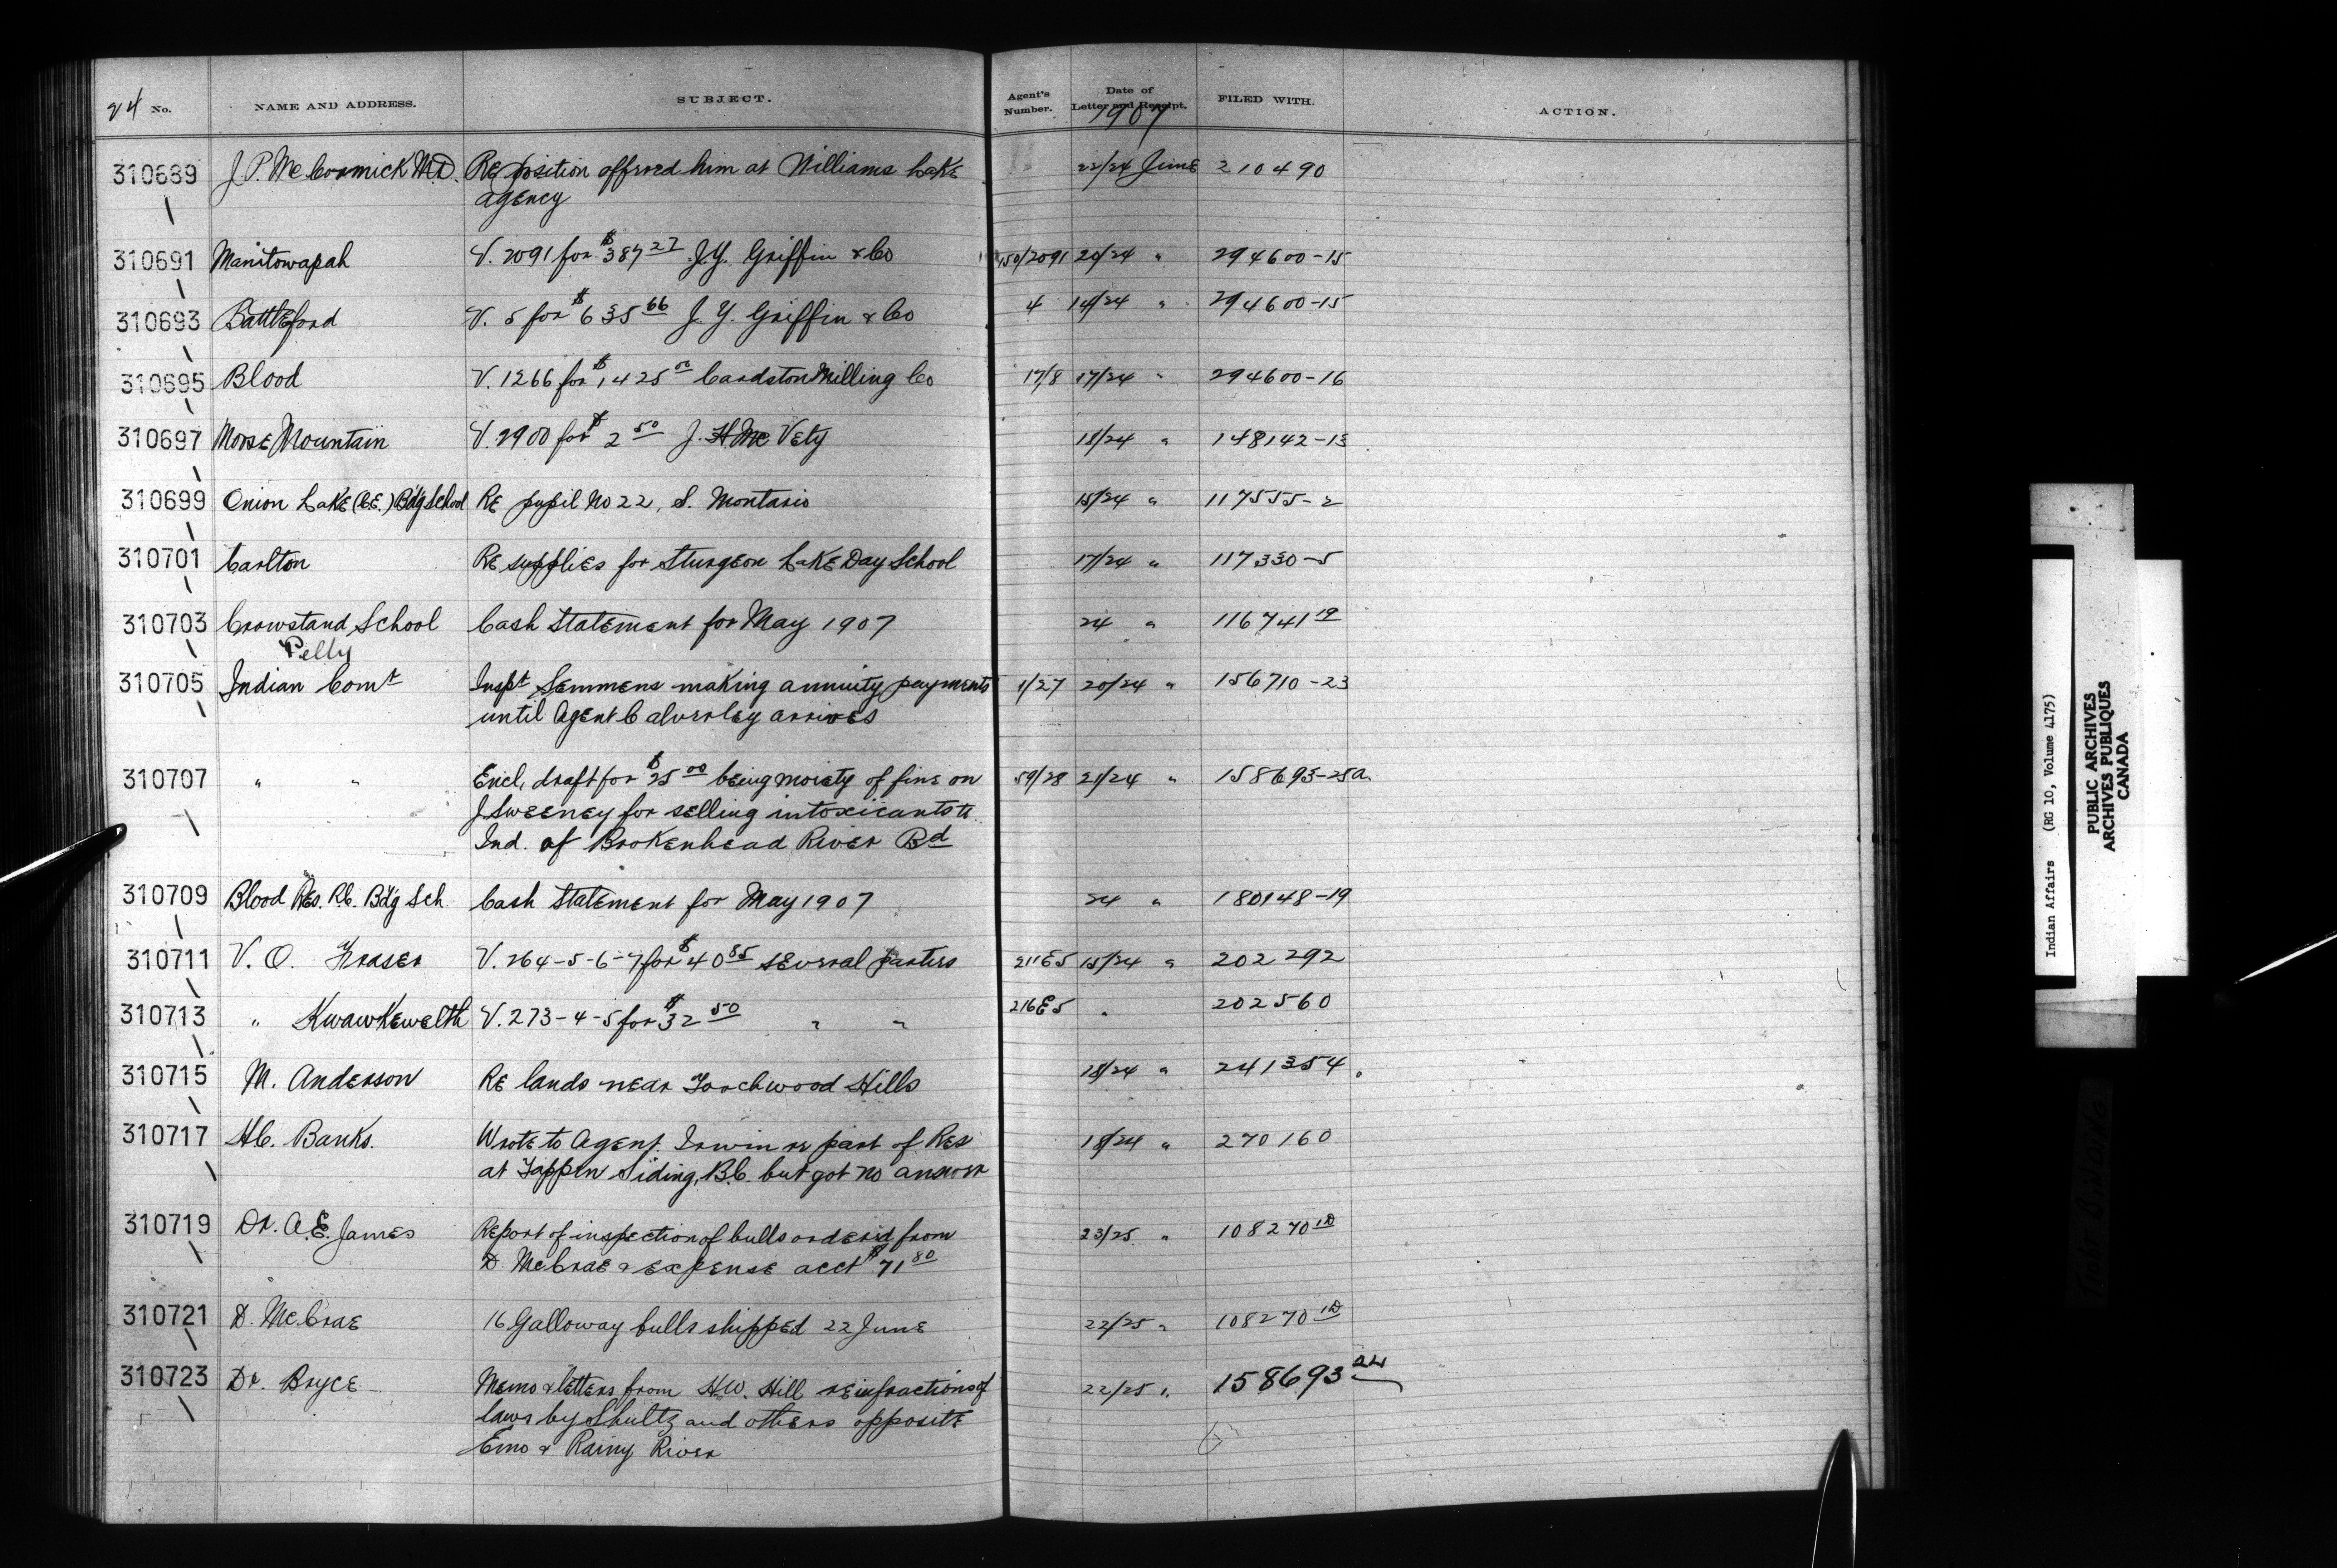 24 No. NAME AND ADDRESS. SUBJECT. Agent's Number. Date of Letter and Receipt. 1907 FILED WITH. ACTION.
310689 J. P. McCormick M.D. Re position offered him at Williams Lake 22/24 June 210490
agency
310691 Manitowapah V. 2091 for $387 27 J.Y. Griffin & Co 150/2091 20/24 " 294600-15
310693 Battleford V. 5 for $635 66 J. Y. Griffin & Co 4 14/24 " 294600-15
310695 Blood V. 1266 for $1,425 00 Cardston Milling Co 17/8 17/24 " 294600-16
310697 Moose Mountain V. 2900 for $2 50 J. H. McVety 18/24 " 148142-13
310699 Onion Lake (C.E.) Bdg School Re pupil No 22, S. Montario 15/24 " 117555-2
310701 Carlton Re supplies for Sturgeon Lake Day School 17/24 " 117330-5
310703 Crowstand School Cash Statement for May 1907 24 " 116741 19
Pelly
310705 Indian Comt Inspt Semmens making annuity payments 1/27 20/24 " 156710-23
until Agent Calverley arrives
310707 " " Encl. draft for $25 00 being moiety of fine on 59/28 21/24 " 158693-25a.
J Sweeney for selling intoxicants to
Ind. of Brokenhead River Bd
310709 Blood Res. R.C. Bdg Sch Cash Statement for May 1907 24 " 180148-19
310711 V. O. Fraser V. 264-5-6-7 for $40 85 several parties 211E5 15/24 " 202292
310713 " Kwawkewelth V. 273-4-5 for $32 50 " " 216E5 " 202560
310715 M. Anderson Re lands near Touchwood Hills 18/24 " 241354
310717 H.C. Banks. Wrote to Agent Irwin re part of Res 18/24 " 270160
at Tappen Siding, B.C. but got no answer
310719 Dr. A.E. James Report of inspection of bulls ordered from 23/25 " 108270 1D
D. McCrae & expense acct $71 80
310721 D. McCrae 16 Galloway bulls shipped 22 June 22/25 " 108270 1D
310723 Dr. Bryce Memo & letters from H.W. Hill re infractions of 22/25 " 158693 24
laws by Shultz and others opposite
Emo & Rainy River
Indian Affairs (RG 10, Volume 4175)
PUBLIC ARCHIVES
ARCHIVES PUBLIQUES
CANADA